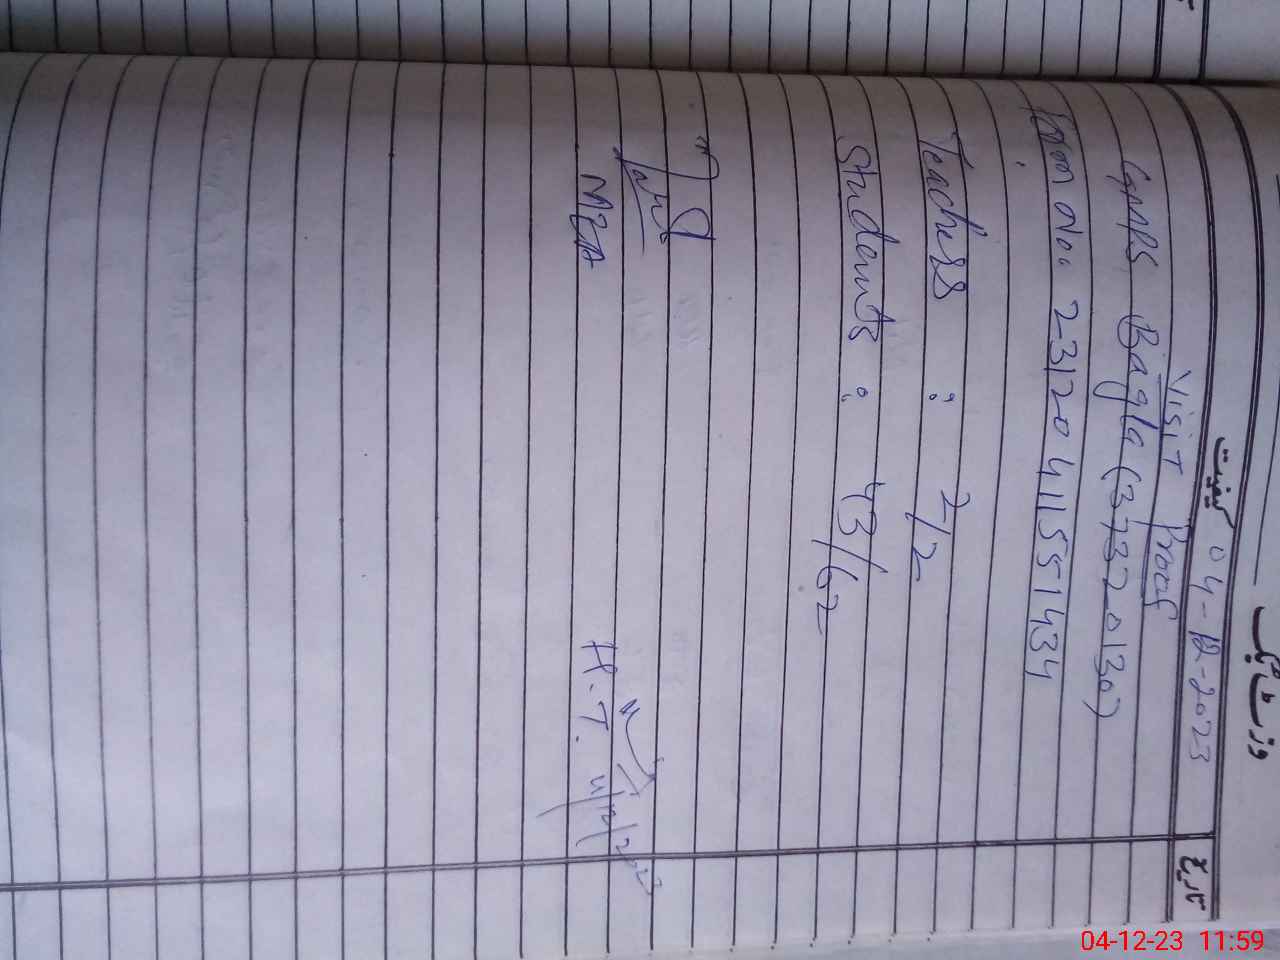 وزٹ بک
کیفیت
تاریخ
04-12-2023
Visit Proof
GMPS Bagla (37320130)
Form No: 231204115551434
Teachers : 2/2
Students : 43/62
MEA
H.T.
4/12/2023
04-12-23 11:59